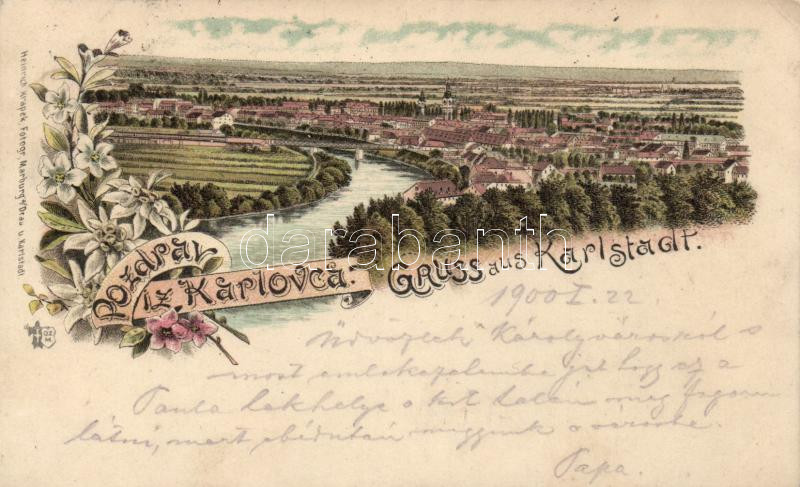 Heinrich Krapek, Fotogr. Marburg a/Drau u. Karlstadt.
POZDRAV
iz KARLOVCA.
GRUSS aus Karlstadt.
darabanth.com
1900 I. 22
Üdvözlek Károlyvárosból s
most jut hogy ez a
Paula lakhelye
látni, mert ebédután megyünk a városba.
Papa.